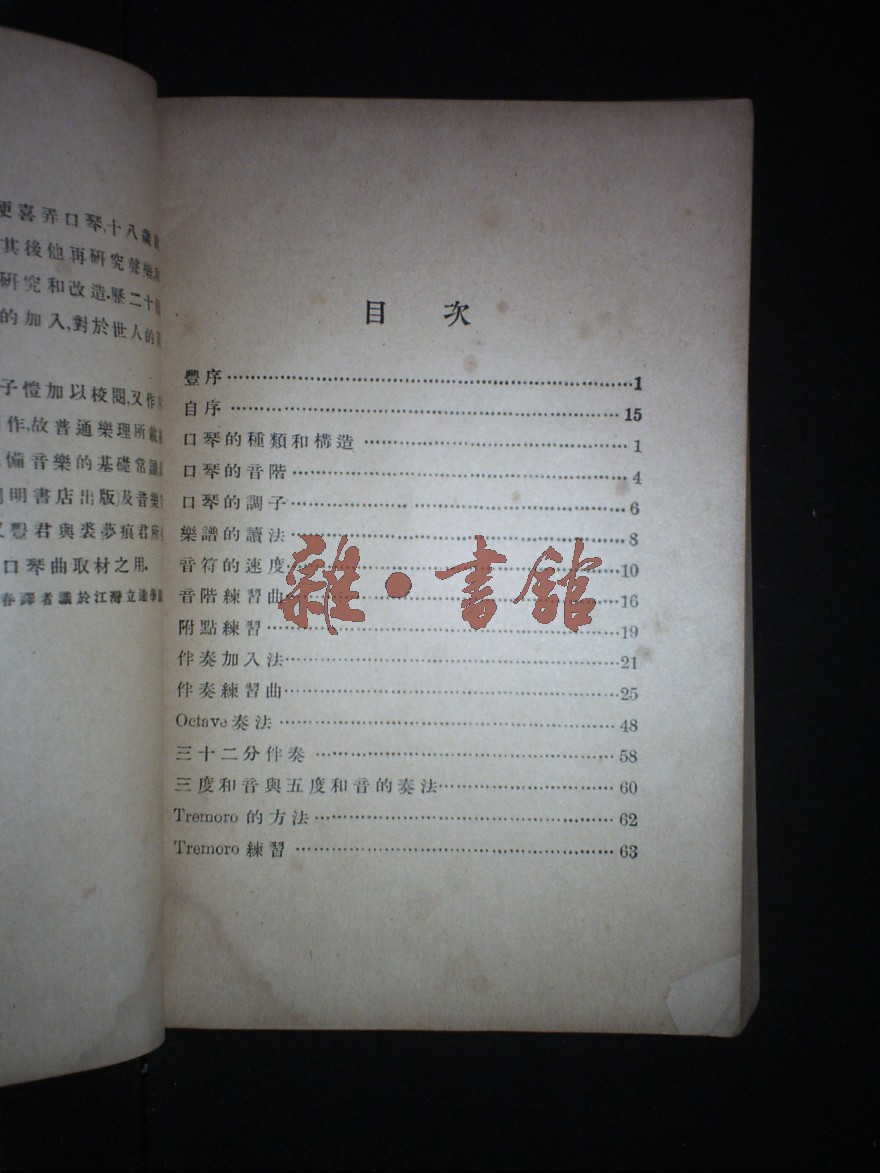 更喜弄口琴,十八歲
其後他再研究聲樂,
研究和改造.歷二十
的加入,對於世人的
子愷加以校閱,又作
作,故普通樂理所
備音樂的基礎常識
明書店出版)及音樂
豐君與裘夢痕君所
口琴曲取材之用.
春譯者識於江灣立達學
目次
豐序……………………1
自序……………………15
口琴的種類和構造……………………1
口琴的音階……………………4
口琴的調子……………………6
樂譜的讀法……………………8
音符的速度……………………10
音階練習曲……………………16
附點練習……………………19
伴奏加入法……………………21
伴奏練習曲……………………25
Octave奏法……………………48
三十二分伴奏……………………58
三度和音與五度和音的奏法……………………60
Tremoro的方法……………………62
Tremoro練習……………………63
雜·書館